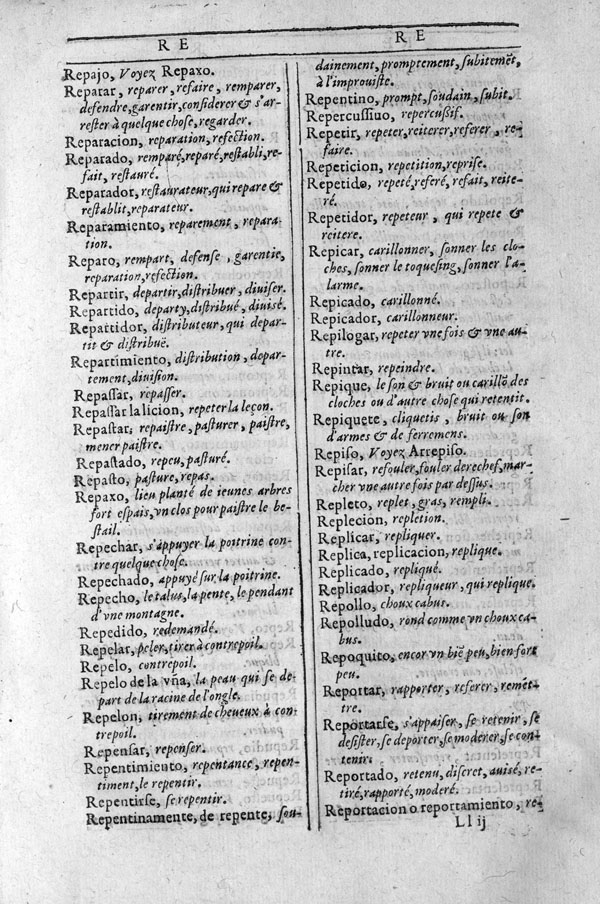 RE
Repajo, Voyez Repaxo.
Reparar, reparer, refaire, remparer,
defendre, garentir, considerer & s'ar-
rester à quelque chose, regarder.
Reparacion, reparation, refection.
Reparado, remparé, reparé, restabli, re-
fait, restauré.
Reparador, restaurateur, qui repare &
restablit, reparateur.
Reparamiento, reparement, repara-
tion.
Reparo, rempart, defense, garentie,
reparation, refection.
Repartir, departir, distribuer, diviser.
Repartido, departy, distribué, divisé.
Repartidor, distributeur, qui depar-
tit & distribuë.
Repartimiento, distribution, depar-
tement, division.
Repassar, repasser.
Repassar la licion, repeter la leçon.
Repastar, repaistre, pasturer, paistre,
mener paistre.
Repastado, repeu, pasturé.
Repasto, pasture, repas.
Repaxo, lieu planté de ieunes arbres
fort espais, vn clos pour paistre le be-
stail.
Repechar, s'appuyer la poitrine con-
tre quelque chose.
Repechado, appuyé sur la poitrine.
Repecho, le talus, la pente, le pendant
d'vne montagne.
Repedido, redemandé.
Repelar, peler, tirer à contrepoil.
Repelo, contrepoil.
Repelo de la vña, la peau qui se de-
part de la racine de l'ongle.
Repelon, tirement de cheueux à con-
trepoil.
Repensar, repenser.
Repentimiento, repentance, repen-
timent, le repentir.
Repentirse, se repentir.
Repentinamente, de repente, sou-
RE
dainement, promptement, subitemẽt,
à l'improuiste.
Repentino, prompt, soudain, subit.
Repercussiuo, repercussif.
Repetir, repeter, reiterer, referer, re-
faire.
Repeticion, repetition, reprise.
Repetido, repeté, referé, refait, reite-
ré.
Repetidor, repeteur, qui repete &
reitere.
Repicar, carillonner, sonner les clo-
ches, sonner le toquesing, sonner l'a-
larme.
Repicado, carillonné.
Repicador, carillonneur.
Repilogar, repeter vne fois & vne au-
tre.
Repintar, repeindre.
Repique, le son & bruit ou carillõ des
cloches ou d'autre chose qui retentit.
Repiquete, cliquetis, bruit ou son
d'armes & de ferremens.
Repiso, Voyez Arrepiso.
Repisar, refouler, fouler derechef, mar-
cher vne autre fois par dessus.
Repleto, replet, gras, rempli.
Replecion, repletion.
Replicar, repliquer.
Replica, replicacion, replique.
Replicado, repliqué.
Replicador, repliqueur, qui replique.
Repollo, choux cabus.
Repolludo, rond comme vn choux ca-
bus.
Repoquito, encor vn biẽ peu, bien fort
peu.
Reportar, rapporter, referer, remet-
tre.
Reportarse, s'appaiser, se retenir, se
desister, se deporter, se moderer, se con-
tenir.
Reportado, retenu, discret, auisé, re-
tiré, rapporté, moderé.
Reportacion o reportamiento, re-
Ll ij